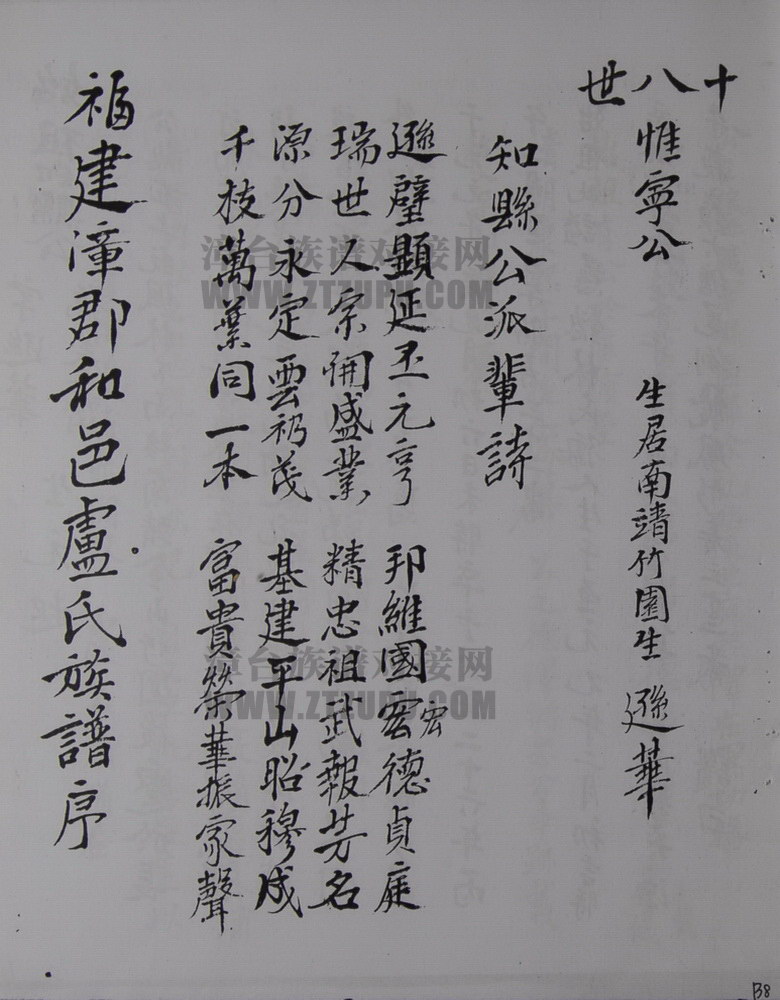 十八世
惟寧公 生居南靖竹園生 遜華
知縣公派輩詩
遜璧顯延丕元亨 邦維國宏德貞庭
宏
瑞世人宗開盛業 精忠祖武報芳名
源分永定雲礽茂 基建平山昭穆成
千枝萬葉同一本 富貴榮華振家聲
福建漳郡和邑盧氏族譜序
漳台族谱对接网
WWW.ZTZUPU.COM
漳台族谱对接网
WWW.ZTZUPU.COM
B8